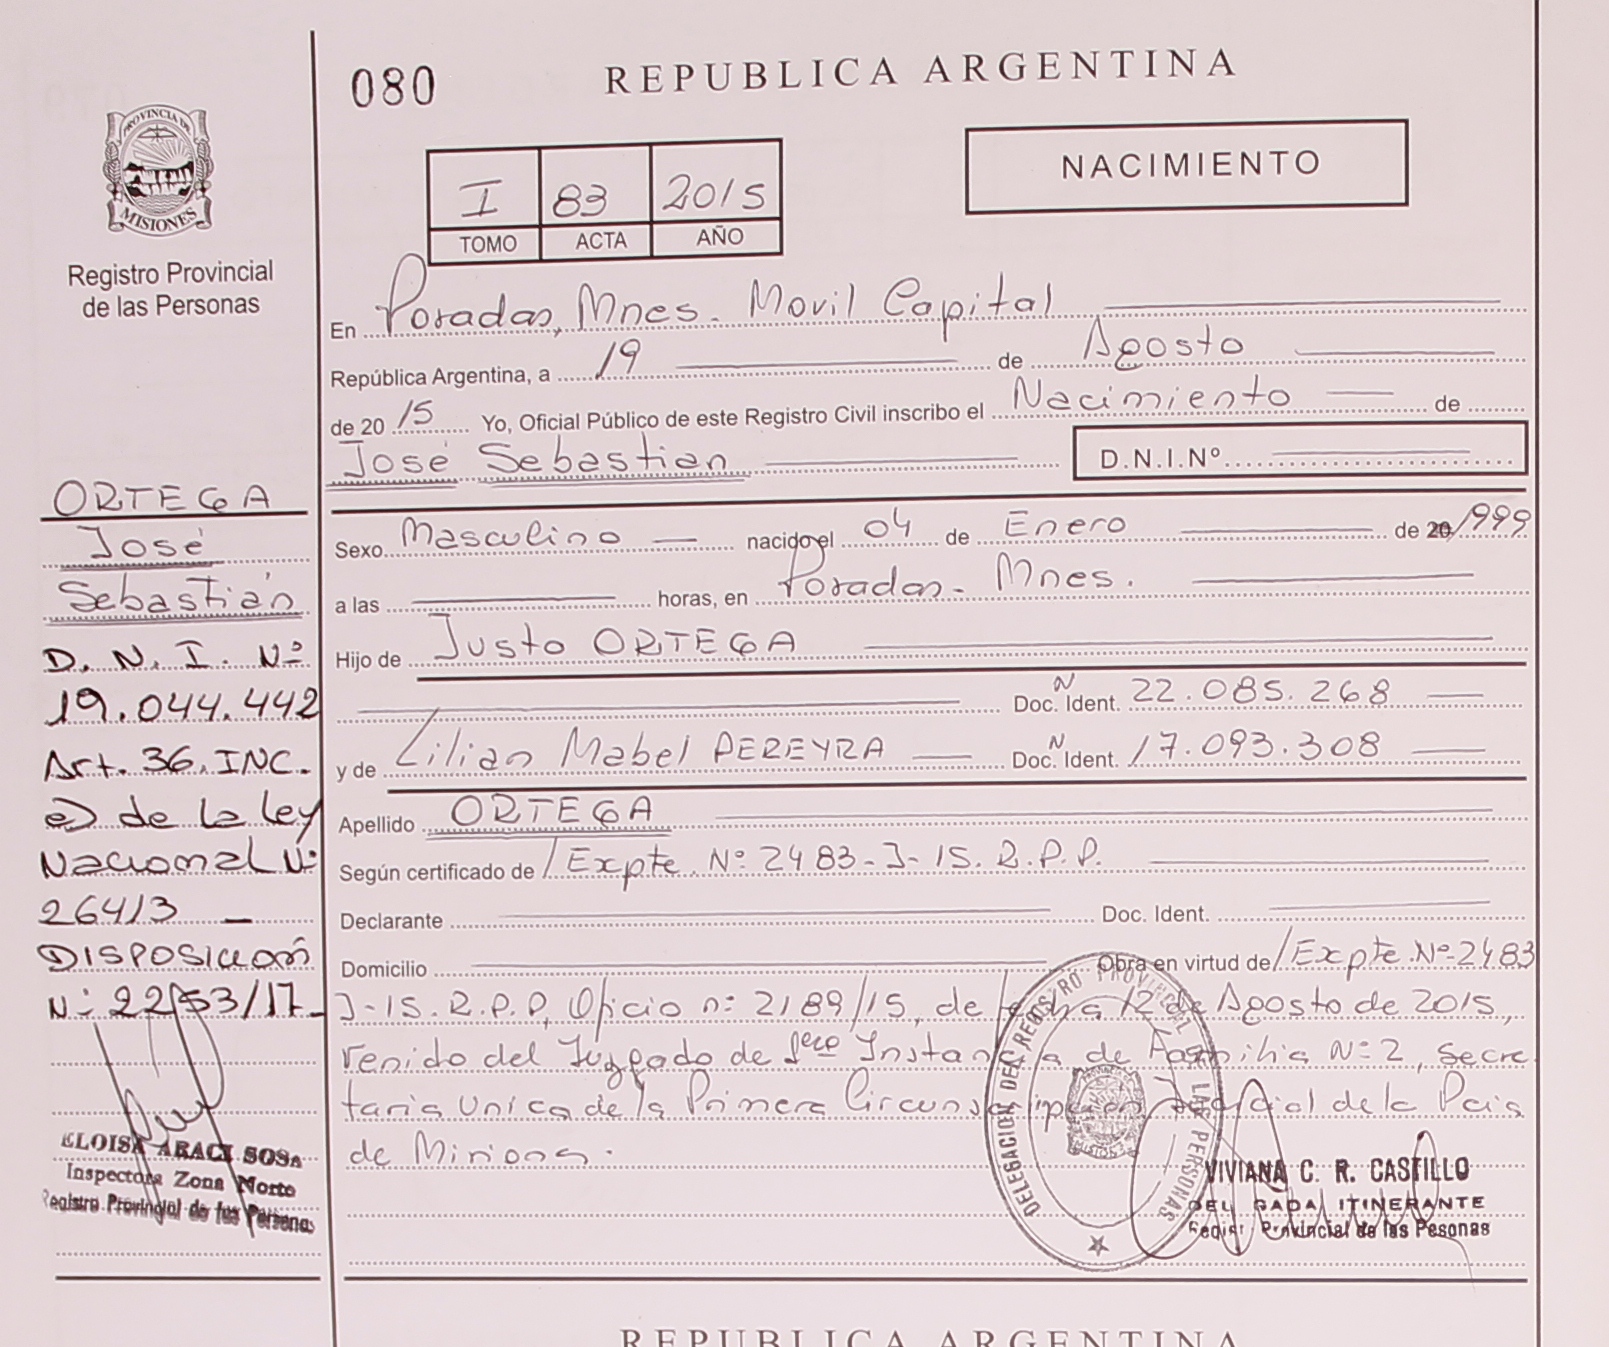 080
REPUBLICA ARGENTINA
PROVINCIA DE
MISIONES
Registro Provincial
de las Personas
I 83 2015
TOMO ACTA AÑO
NACIMIENTO
En Posadas, Mnes. Movil Capital
República Argentina, a 19 de Agosto
de 20 15 Yo, Oficial Público de este Registro Civil inscribo el Nacimiento de
José Sebastian
D.N.I.Nº
Sexo Masculino nacido el 04 de Enero de 20 1999
a las horas, en Posadas - Mnes.
Hijo de Justo ORTEGA
Doc. Ident. N 22.085.268
y de Lilian Mabel PEREYRA Doc. Ident. N 17.093.308
Apellido ORTEGA
Según certificado de / Expte. Nº 2483-J-15. R.P.P.
Declarante Doc. Ident.
Domicilio Obra en virtud de / Expte. Nº 2483
J-15. R.P.P, Oficio nº 2189/15, de fecha 12 de Agosto de 2015,
venido del Juzgado de 1era Instancia de Familia Nº 2, Secre
taria Unica de la Primera Circunscripcion Judicial de la Pcia
de Misiones.
ORTEGA
José
Sebastián
D. N. I. Nº
19.044.442
Art. 36. INC.
e) de la ley
Nacional Nº
26413
DISPOSICIÓN
Nº 2253/17
ELOISA ARACI SOSA
Inspectora Zona Norte
Registro Provincial de las Personas
DELEGACION DEL REGISTRO PROVINCIAL DE LAS PERSONAS
MISIONES
VIVIANA C. R. CASTILLO
DELEGADA ITINERANTE
Registr Provincial de las Pesonas
REPUBLICA ARGENTINA